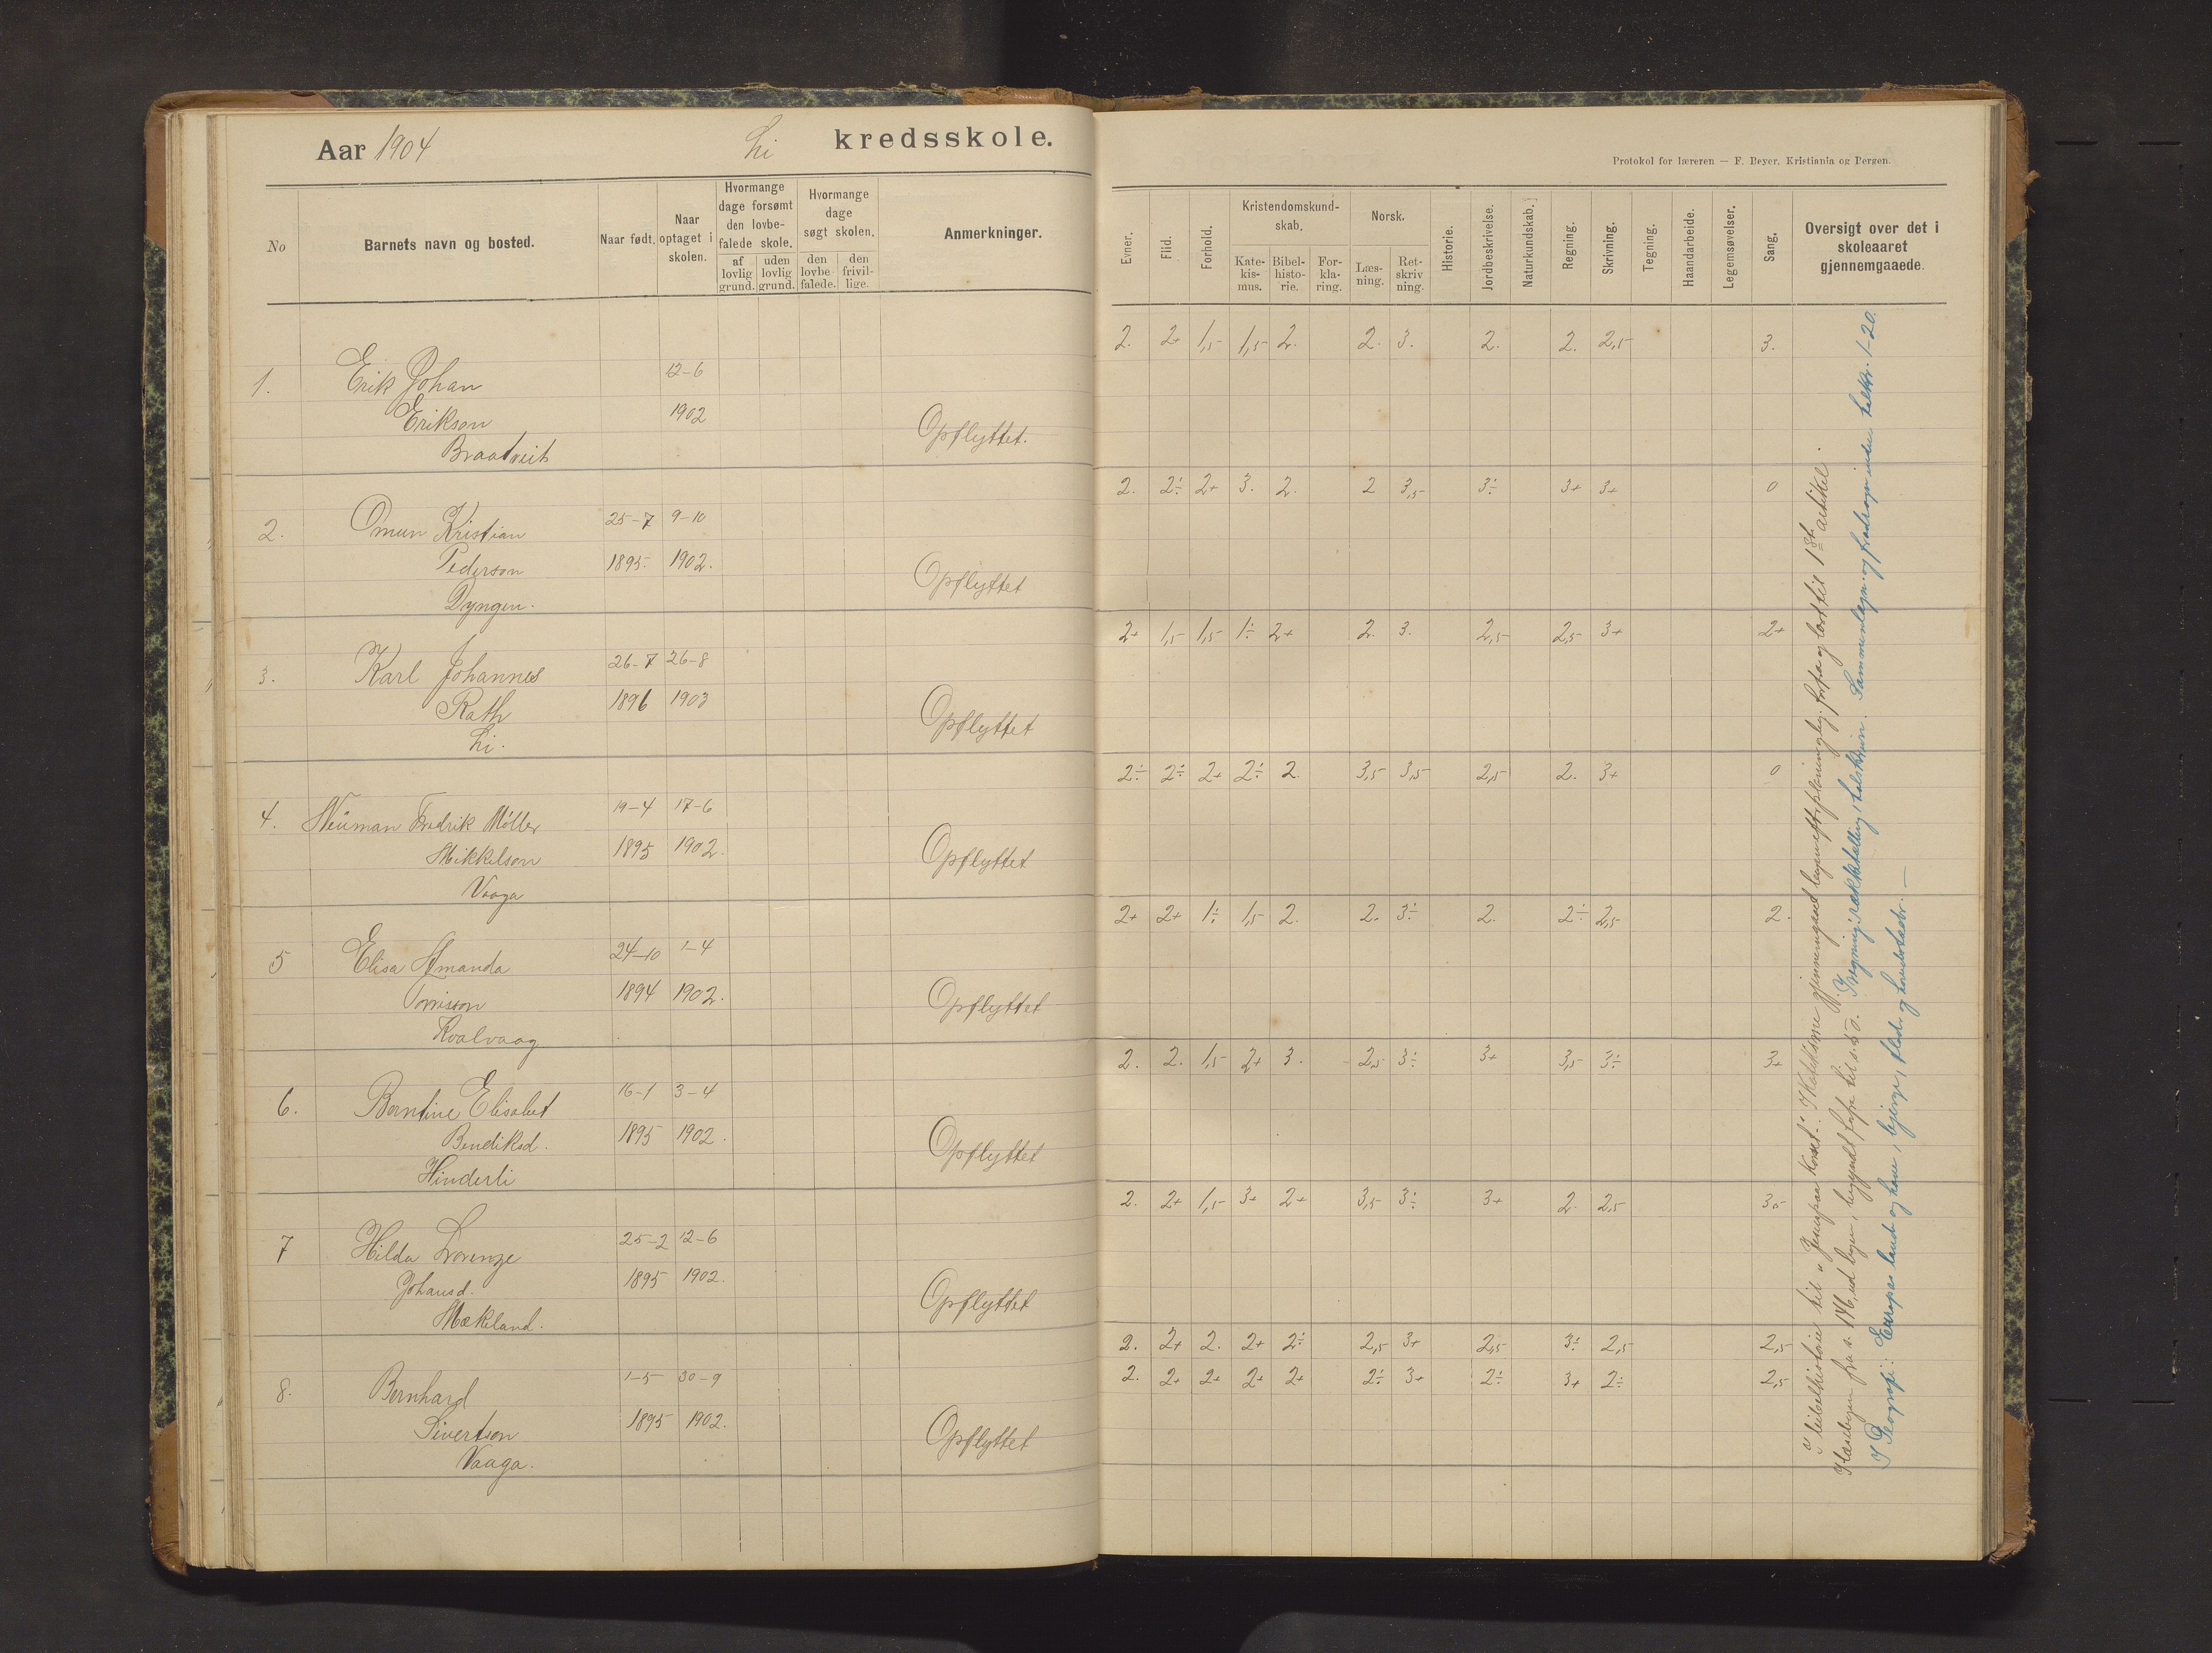 Aar 1904 Li kredsskole.
Protokol for læreren — F. Beyer, Kristiania og Bergen.
No
Barnets navn og bosted.
Naar født.
Naar optaget i skolen.
Hvormange dage forsømt den lovbefalede skole.
af lovlig grund.
uden lovlig grund.
Hvormange dage søgt skolen.
den lovbefalede.
den frivillige.
Anmerkninger.
Evner.
Flid.
Forhold.
Kristendomskundskab.
Katekismus.
Bibelhistorie.
Forklaring.
Norsk.
Læsning.
Retskrivning.
Historie.
Jordbeskrivelse.
Naturkundskab.
Regning.
Skrivning.
Tegning.
Haandarbeide.
Legemsøvelser.
Sang.
Oversigt over det i skoleaaret gjennemgaaede.
2. 2+ 1,5 1,5 2. 2. 3. 2. 2. 2,5 3.
1. Erik Johan 12-6
Erikson 1902 Opflyttet.
Braatveit
2. 2÷ 2+ 3. 2. 2 3,5 3÷ 3+ 3+ 0
2. Omun Kristian 25-7 9-10
Pederson 1895. 1902. Opflyttet
Dyngen.
2+ 1,5 1,5 1÷ 2+ 2. 3. 2,5 2,5 3+ 2+
3. Karl Johannes 26-7 26-8
Rath 1896 1903 Opflyttet
Li.
2÷ 2÷ 2+ 2÷ 2. 3,5 3,5 2,5 2. 3+ 0
4. Neuman Fredrik Møller 19-4 17-6
Mikkelson 1895 1902. Opflyttet
Vaaga
2+ 2+ 1÷ 1,5 2. 2. 3÷ 2. 2÷ 2,5 2.
5 Elisa Amanda 24-10 1-4
Tørrisson 1894 1902. Opflyttet
Kvalvaag
2. 2. 1,5 2+ 3. 2,5 3÷ 3+ 3,5 3÷ 3+
6. Berntine Elisabet 16-1 3-4
Bendiksd. 1895 1902. Opflyttet
Hinderli
2. 2+ 1,5 3+ 2+ 3,5 3÷ 3+ 2. 2,5 3,5
7 Hilda Lorenze 25-2 12-6
Johansd. 1895 1902. Opflyttet
Mækeland.
2. 2+ 2. 2+ 2÷ 2,5 3+ 2,5 3÷ 2,5 2,5
2. 2+ 2+ 2+ 2+ 2÷ 3+ 2÷ 3+ 2÷ 2,5
8. Bernhard 1-5 30-9
Sivertson 1895 1902. Opflyttet
Vaaga.
I bibelhistorie til "Jesus paa korset". gjennemgaaet og læst til 1ste artikel.
I læsebogen fra s. 146, ud bogen, begyndt til s. 50. I regning: rækketælling, talskriven. Sammenlægn. og fradragn. inden talkr. 1-20.
I Geografi: Europas lande og have, bjerge, floder og hovedstæder. —